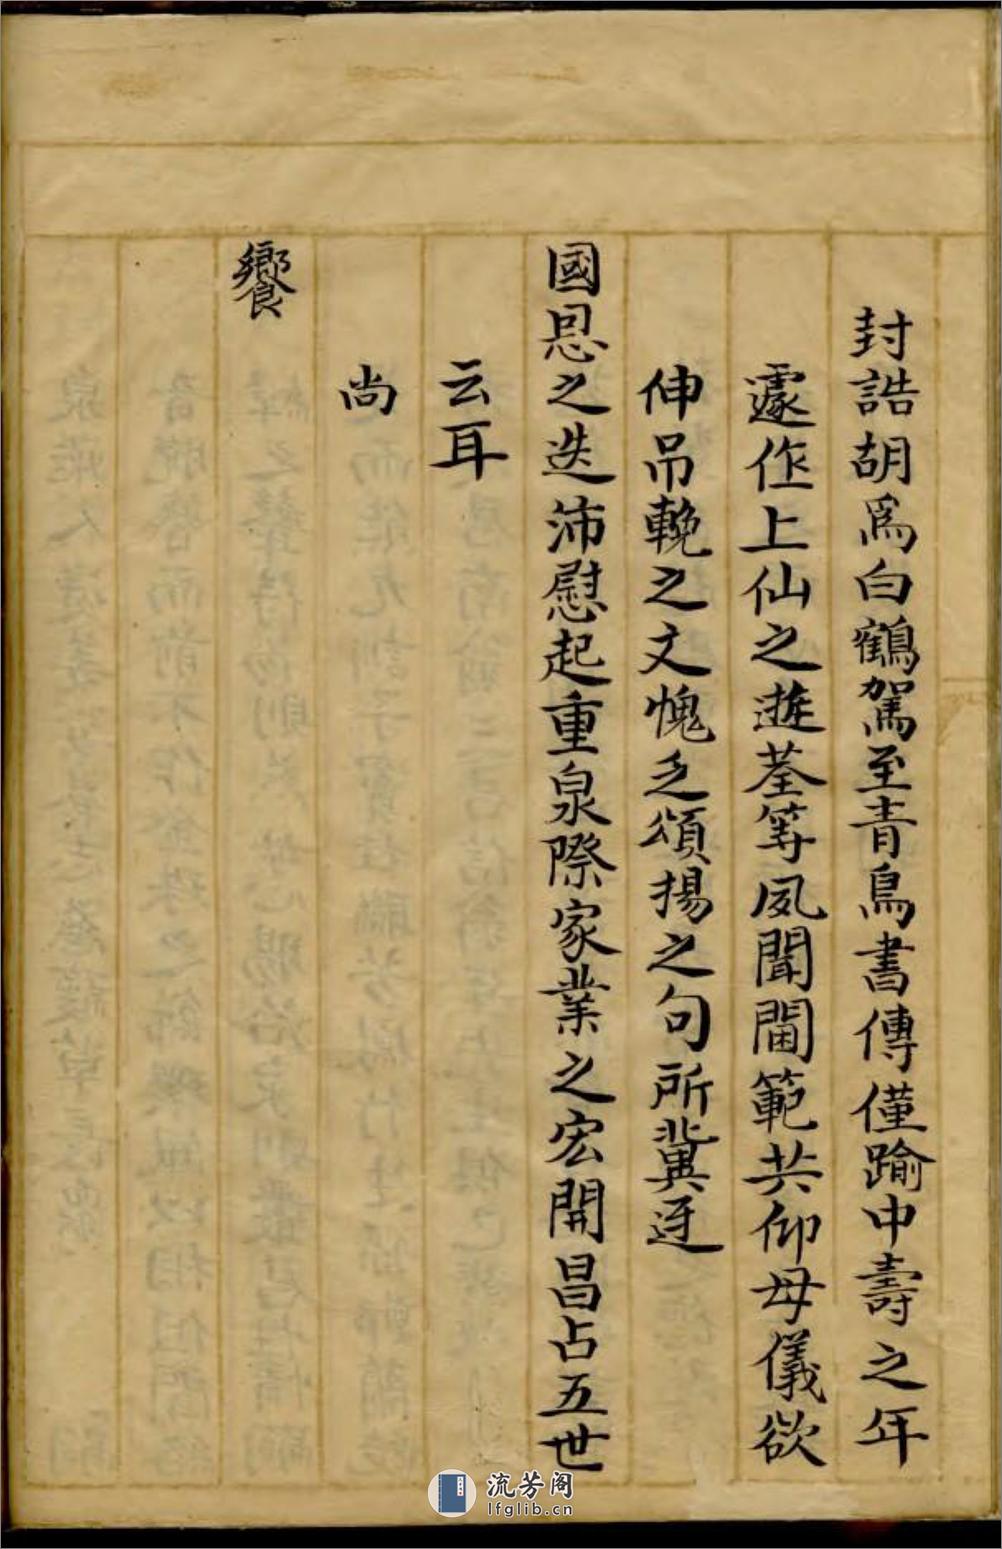 封誥胡為白鶴駕至青鳥書傳僅踰中壽之年
遽作上仙之遊荃等夙聞閫範共仰母儀欲
伸吊輓之文愧乏頌揚之句所冀迓
國恩之迭沛慰起重泉際家業之宏開昌占五世
云耳
尚
饗
流芳阁
lfglib.cn